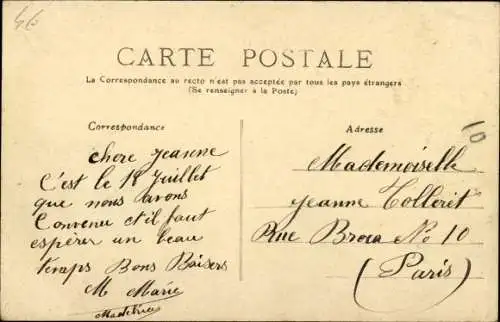 CARTE POSTALE
La Correspondance au recto n'est pas acceptée par tous les pays étrangers
(Se renseigner à la Poste)
Correspondance
chere jeanne
C'est le 18 Juillet
que nous avons
Convenu et il faut
espérer un beau
temps Bons Baisers
M Marie
Adresse
10
Mademoiselle
jeanne Tolleret
Rue Broca No 10
(Paris)